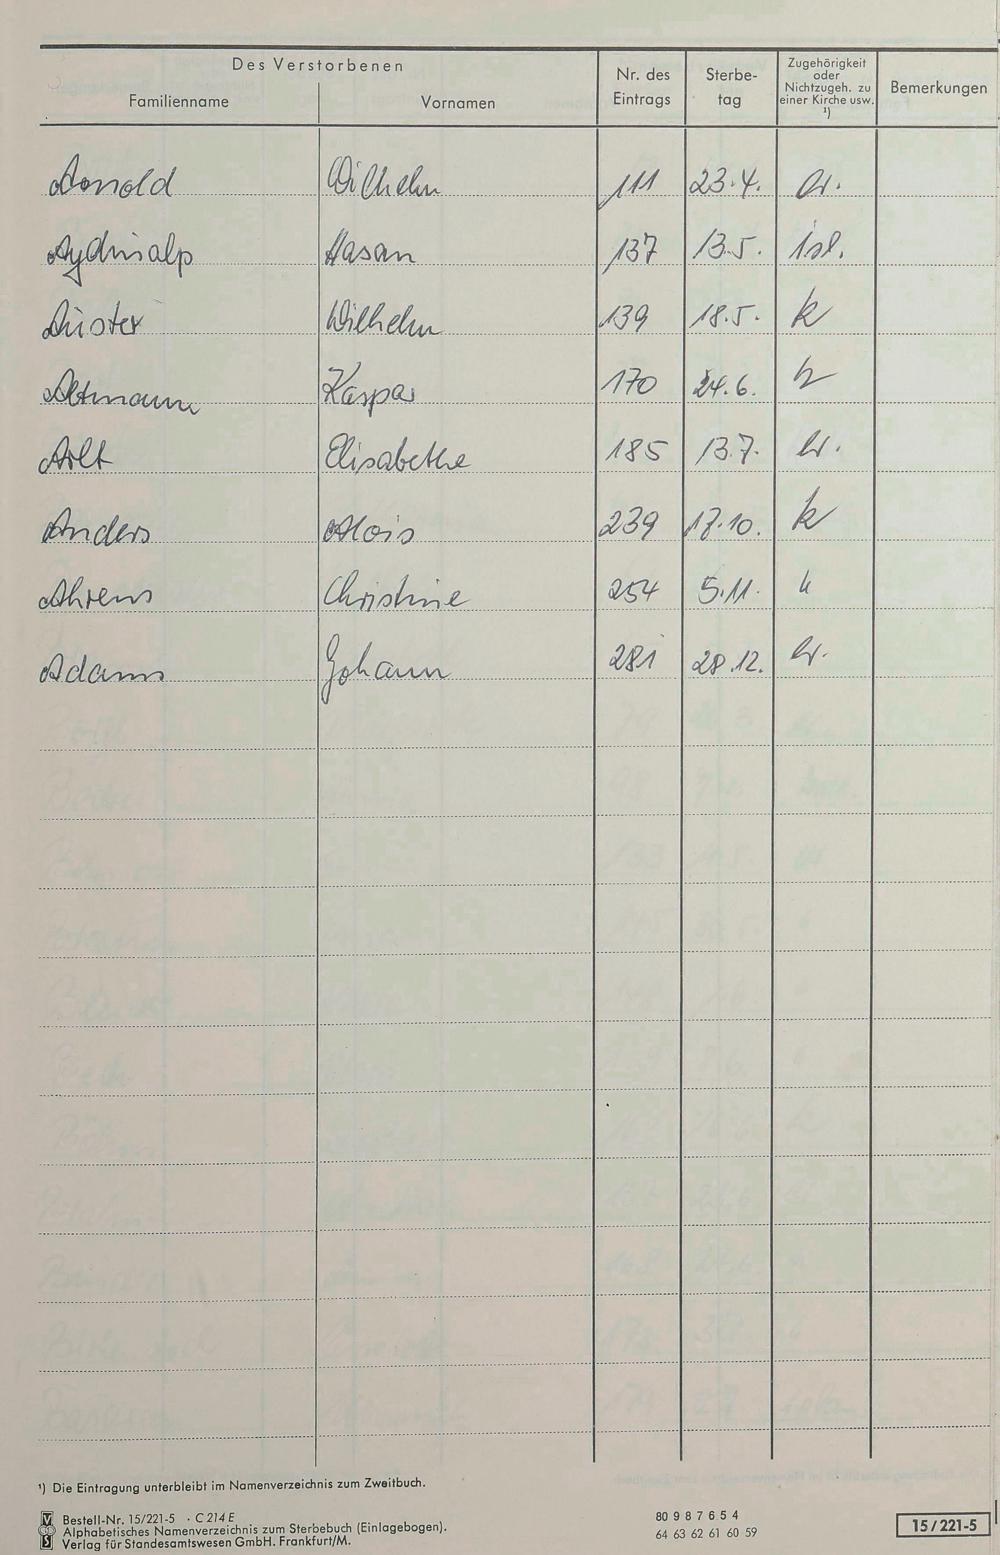 Des Verstorbenen
Familienname Vornamen Nr. des Eintrags Sterbe- tag Zugehörigkeit oder Nichtzugeh. zu einer Kirche usw. ¹) Bemerkungen
Arnold Wilhelm 111 23.4. ev.
Aydinalp Hasan 137 13.5. isl.
Auster Wilhelm 139 18.5. k
Altmann Kaspar 170 24.6.
Arlt Elisabethe 185 13.7. ev.
Anders Alois 239 17.10. k
Ahrens Christine 254 5.11.
Adams Johann 281 28.12. ev.
¹) Die Eintragung unterbleibt im Namenverzeichnis zum Zweitbuch.
Bestell-Nr. 15/221-5 · C 214 E
Alphabetisches Namenverzeichnis zum Sterbebuch (Einlagebogen).
Verlag für Standesamtswesen GmbH. Frankfurt/M.
80 9 8 7 6 5 4
64 63 62 61 60 59
15/221-5